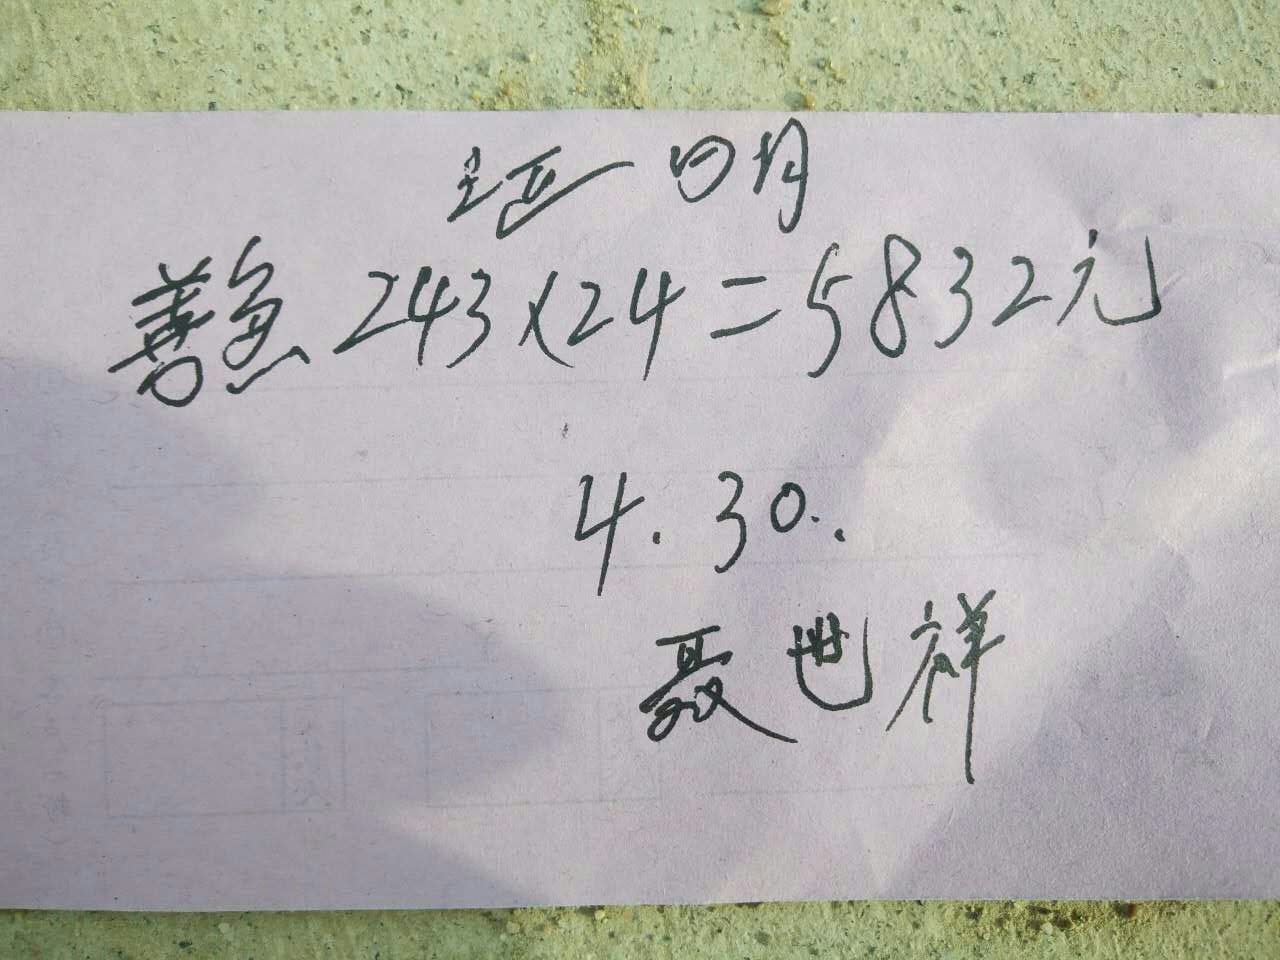 明
善鱼 243×24=5832元
4.30.
聂世祥